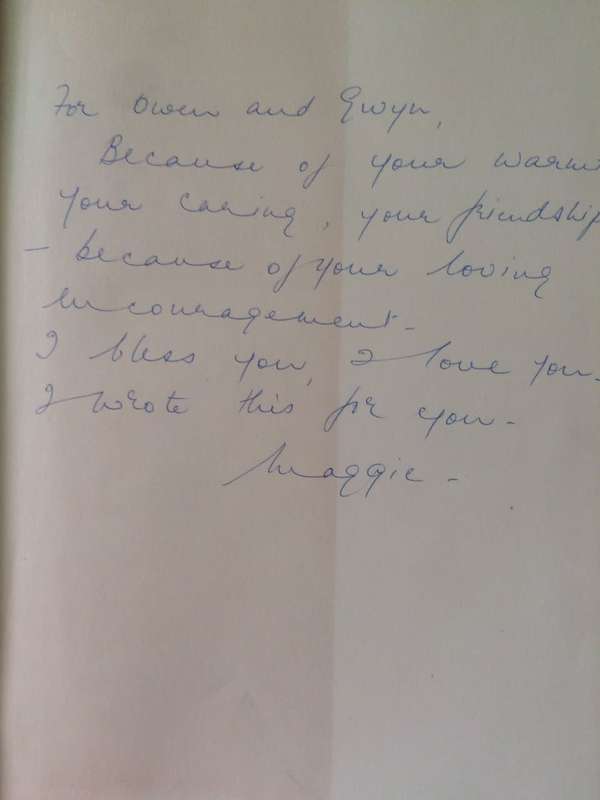 For Owen and Gwyn,
Because of your warm
your caring, your friendship
- because of your loving
encouragement -
I bless you, I love you.
I wrote this for you -
Maggie -